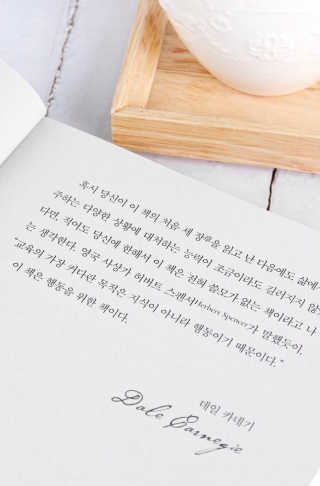 혹시 당신이 이 책의 처음 세 장章을 읽고 난 다음에도 삶에서
주하는 다양한 상황에 대처하는 능력이 조금이라도 길러지지 않
다면, 적어도 당신에 한해서 이 책은 전혀 쓸모가 없는 책이라고 나
는 생각한다. 영국 사상가 허버트 스펜서Herbert Spencer가 말했듯이,
"교육의 가장 커다란 목적은 지식이 아니라 행동이기 때문이다."
이 책은 행동을 위한 책이다.
데일 카네기
Dale Carnegie